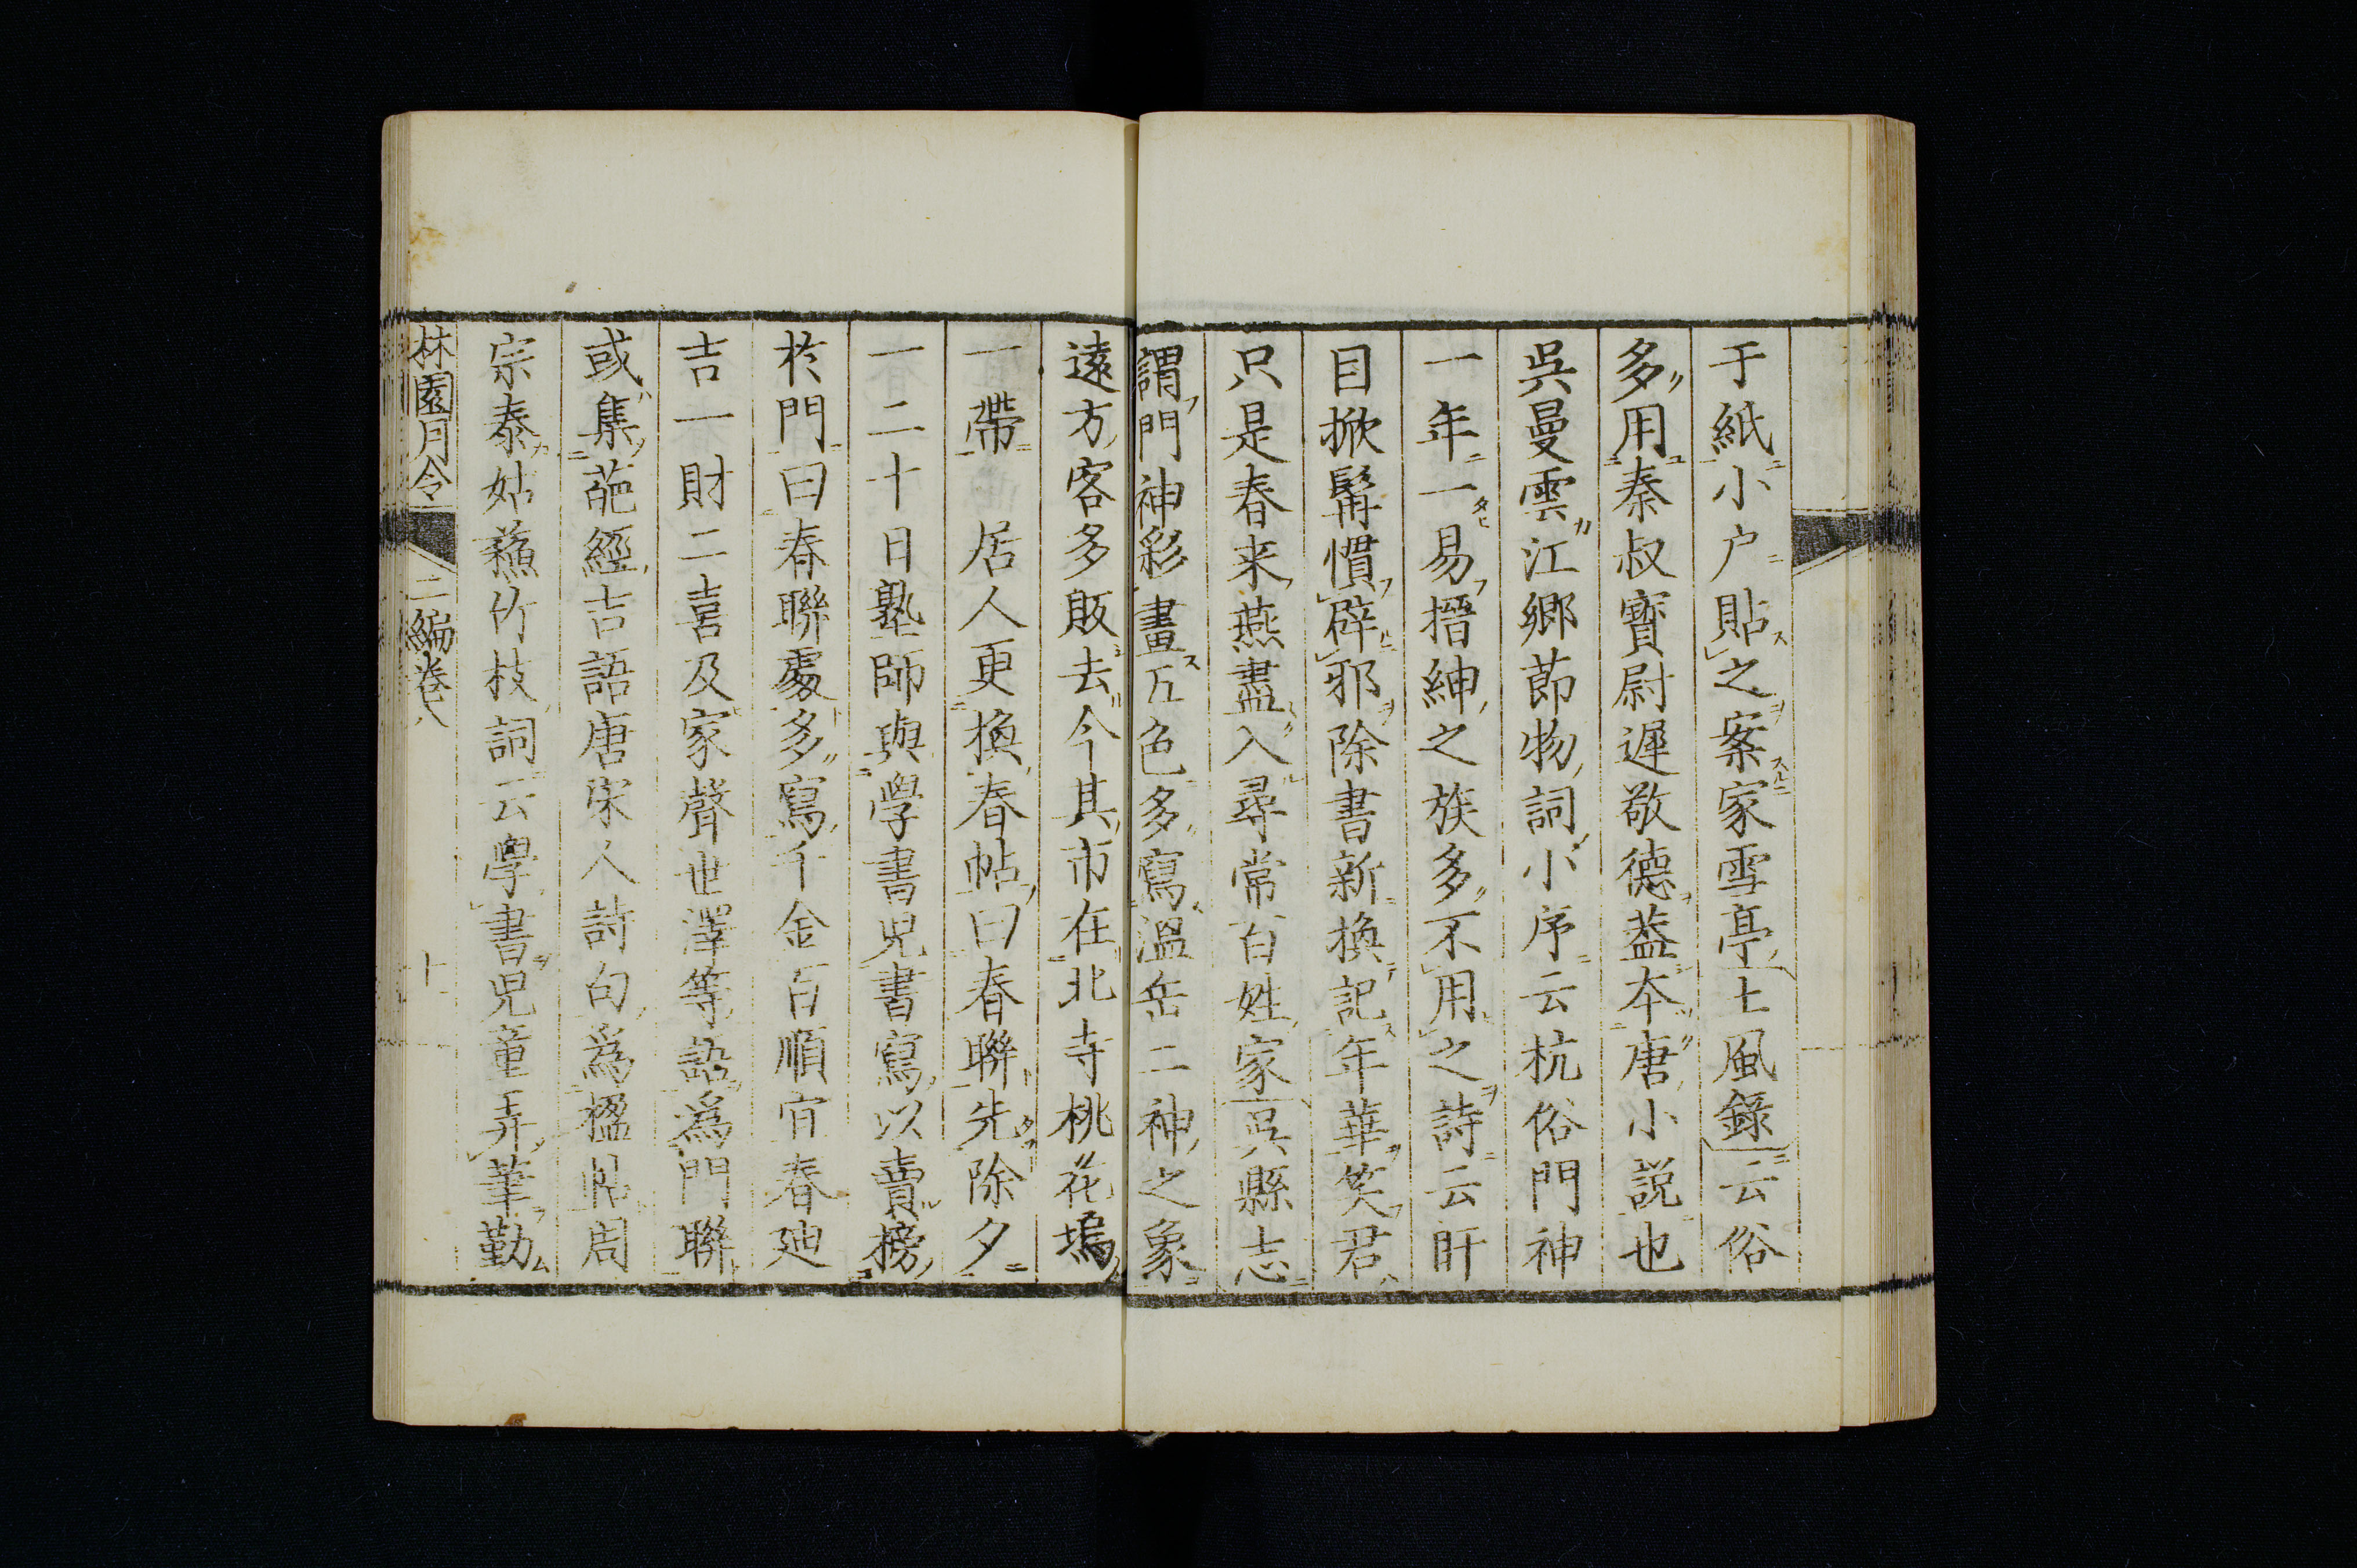 于紙小户貼之案家雪亭土風錄云俗
多用秦叔寳尉遲敬德葢夲唐小説也
吳曼雲江鄉節物詞小序云杭俗門神
一年一易搢紳之族多不用之詩云盱
目掀髯慣辟邪除書新換記年華笑君
只是春来燕盡入尋常百姓家吳縣志
謂門神彩畫五色多寫溫岳二神之象
遠方客多販去今其市在北寺桃花塢
一帶 居人更換春帖曰春聯先除夕
一二十日塾師與學書兒書寫以賣榜
於門曰春聯處多寫千金百順宜春廸
吉一財二喜及家聲世澤等語爲門聯
或集葩經吉語唐宋人詩句爲楹帖周
宗泰姑蘇竹枝詞云學書兒童弄筆勤
林園月令 二編卷八 十